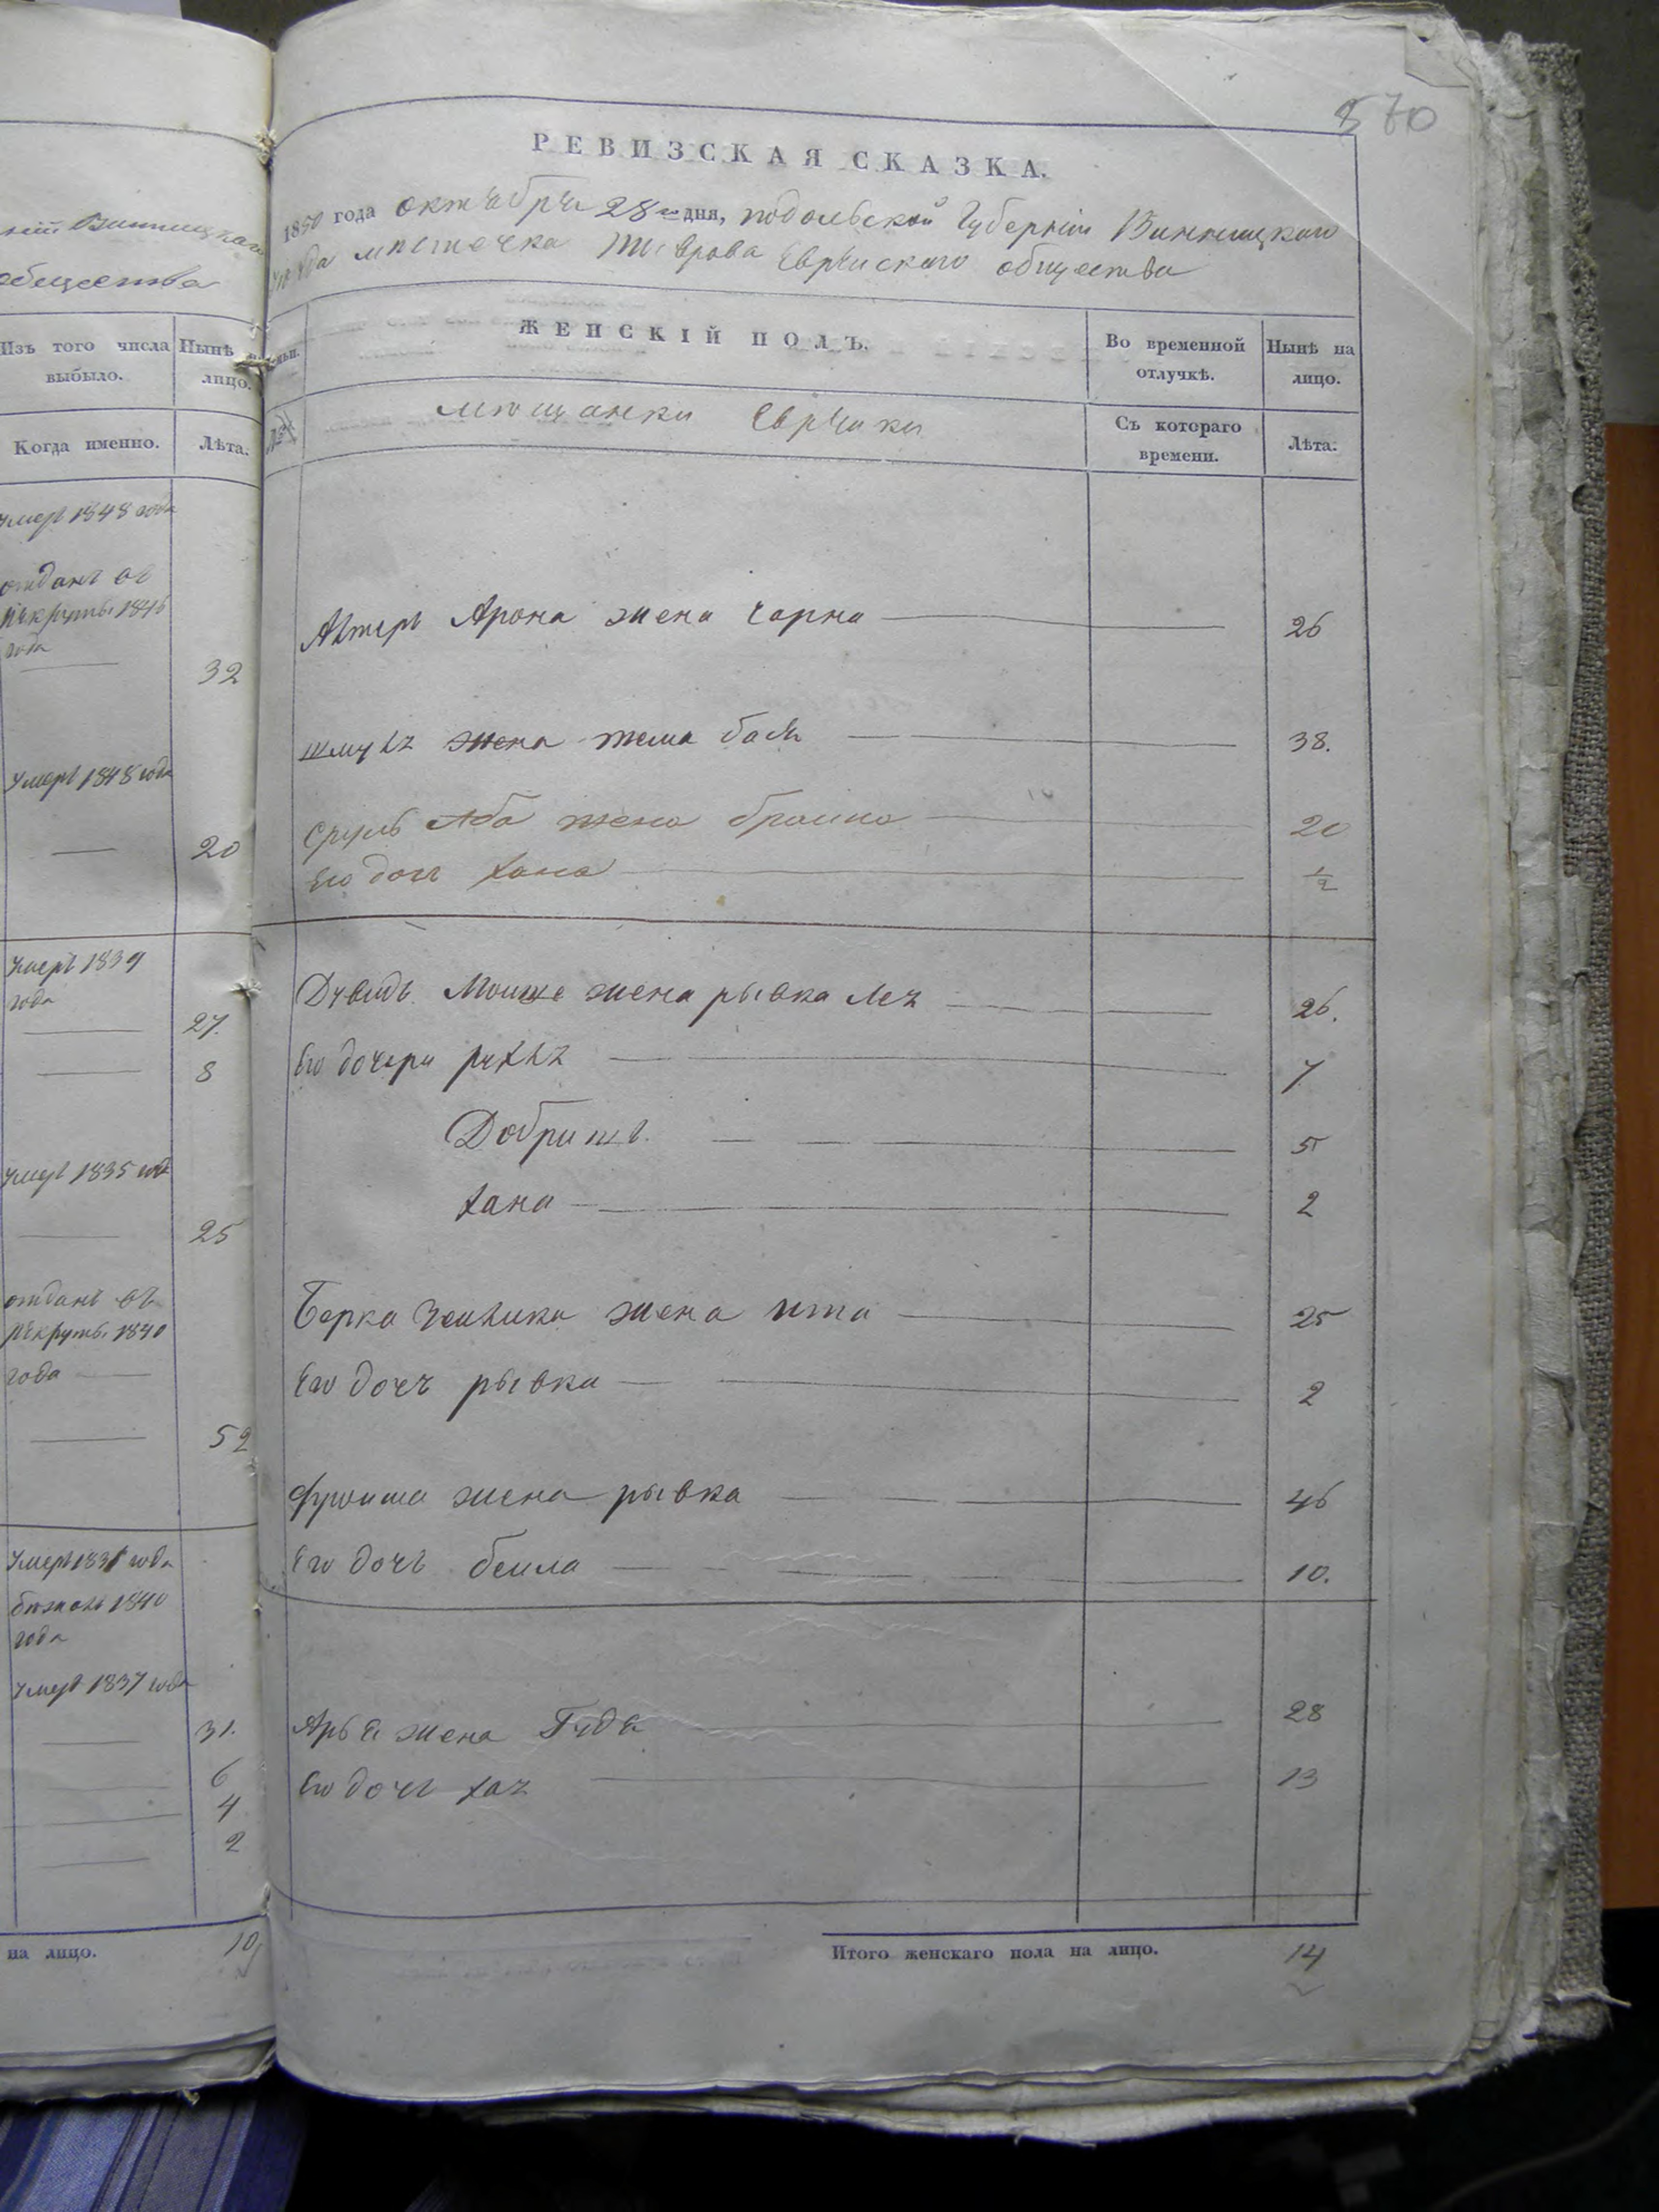 общества
Изъ того числа выбыло.
Нынѣ на лицо.
Когда именно.
Лѣта.
умерѣ 1848 года
отданъ въ
рекруты 1846
года
32
умеръ 1848 года
20
умеръ 1839
года
27.
8
умеръ 1835 года
25
отданъ въ
рекруты 1840
года
52
умеръ 183 года
бѣжалъ 1840
года
умеръ 1837 года
31.
6
4
2
на лицо.
10
570
РЕВИЗСКАЯ СКАЗКА.
1850 года октября 28го дня, подольской Губерніи Винницкаго
уѣзда мѣстечка Тыврова Еврейскаго общества
ЖЕНСКІЙ ПОЛЪ.
Во временной отлучкѣ.
Нынѣ на лицо.
мѣщанки Еврейки
Съ котораго времени.
Лѣта.
Арона жена Чарна 26
жена бася 38.
Сруль Аба жена браина 20
Его дочь хана 1/2
Дувидъ Мошке жена рывка Лея 26.
Его дочери 7
Добришъ 5
хана 2
Берка жена ита 25
Его дочь рывка 2
Фроима жена рывка 46
Его дочь беила 10.
Арья жена Гудя 28
Его дочь хая 13
Итого женскаго пола на лицо. 14